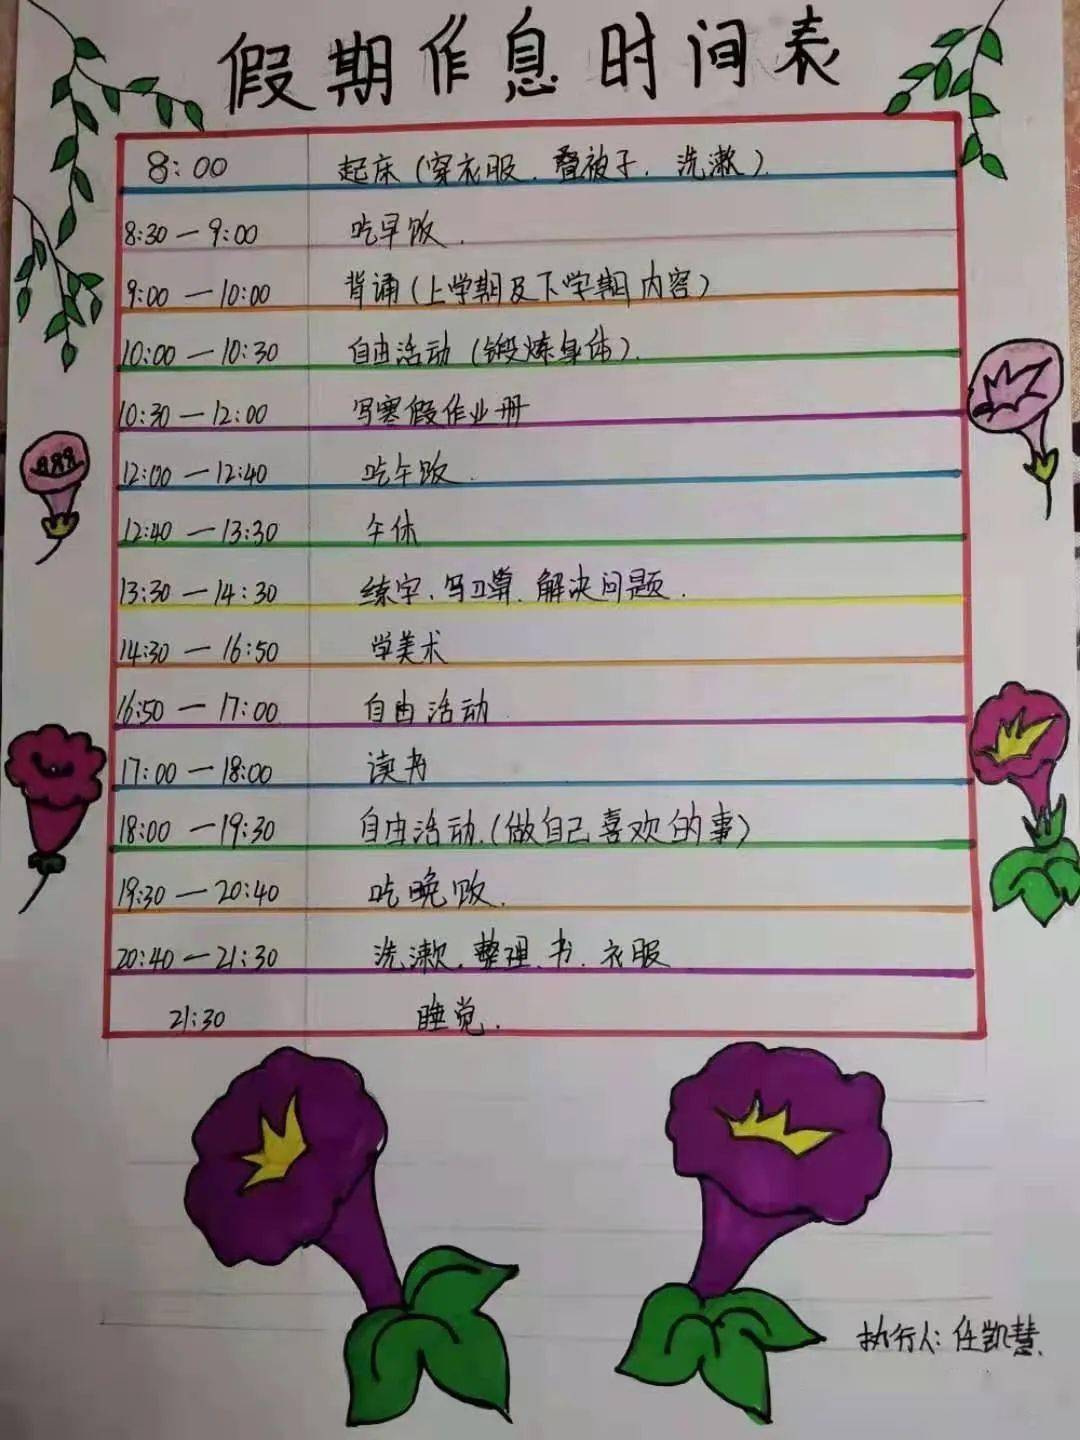 假期作息时间表
8:00 起床(穿衣服、叠被子、洗漱).
8:30—9:00 吃早饭.
9:00—10:00 背诵(上学期及下学期内容)
10:00—10:30 自由活动(锻炼身体).
10:30—12:00 写寒假作业册
12:00—12:40 吃午饭.
12:40—13:30 午休
13:30—14:30 练字、写口算、解决问题.
14:30—16:50 学美术
16:50—17:00 自由活动
17:00—18:00 读书
18:00—19:30 自由活动.(做自己喜欢的事)
19:30—20:40 吃晚饭.
20:40—21:30 洗漱、整理、书、衣服
21:30 睡觉.
执行人:任凯慧.